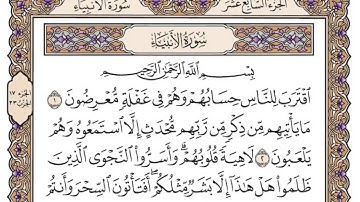 الجزء السابع عشر
سورة الأنبياء
سُورَةُ الأَنبِيَاءِ
بِسْمِ ٱللَّهِ ٱلرَّحْمَٰنِ ٱلرَّحِيمِ
ٱقْتَرَبَ لِلنَّاسِ حِسَابُهُمْ وَهُمْ فِى غَفْلَةٍ مُّعْرِضُونَ ١
مَا يَأْتِيهِم مِّن ذِكْرٍ مِّن رَّبِّهِم مُّحْدَثٍ إِلَّا ٱسْتَمَعُوهُ وَهُمْ
يَلْعَبُونَ ٢ لَاهِيَةً قُلُوبُهُمْ ۗ وَأَسَرُّوا۟ ٱلنَّجْوَى ٱلَّذِينَ
ظَلَمُوا۟ هَلْ هَٰذَآ إِلَّا بَشَرٌ مِّثْلُكُمْ ۖ أَفَتَأْتُونَ ٱلسِّحْرَ وَأَنتُمْ